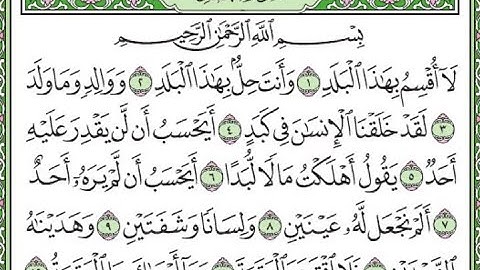 بِسْمِ اللَّهِ الرَّحْمَٰنِ الرَّحِيمِ
لَا أُقْسِمُ بِهَٰذَا الْبَلَدِ ١ وَأَنتَ حِلٌّ بِهَٰذَا الْبَلَدِ ٢ وَوَالِدٍ وَمَا وَلَدَ
٣ لَقَدْ خَلَقْنَا الْإِنسَانَ فِي كَبَدٍ ٤ أَيَحْسَبُ أَن لَّن يَقْدِرَ عَلَيْهِ
أَحَدٌ ٥ يَقُولُ أَهْلَكْتُ مَالًا لُّبَدًا ٦ أَيَحْسَبُ أَن لَّمْ يَرَهُ أَحَدٌ
٧ أَلَمْ نَجْعَل لَّهُ عَيْنَيْنِ ٨ وَلِسَانًا وَشَفَتَيْنِ ٩ وَهَدَيْنَاهُ